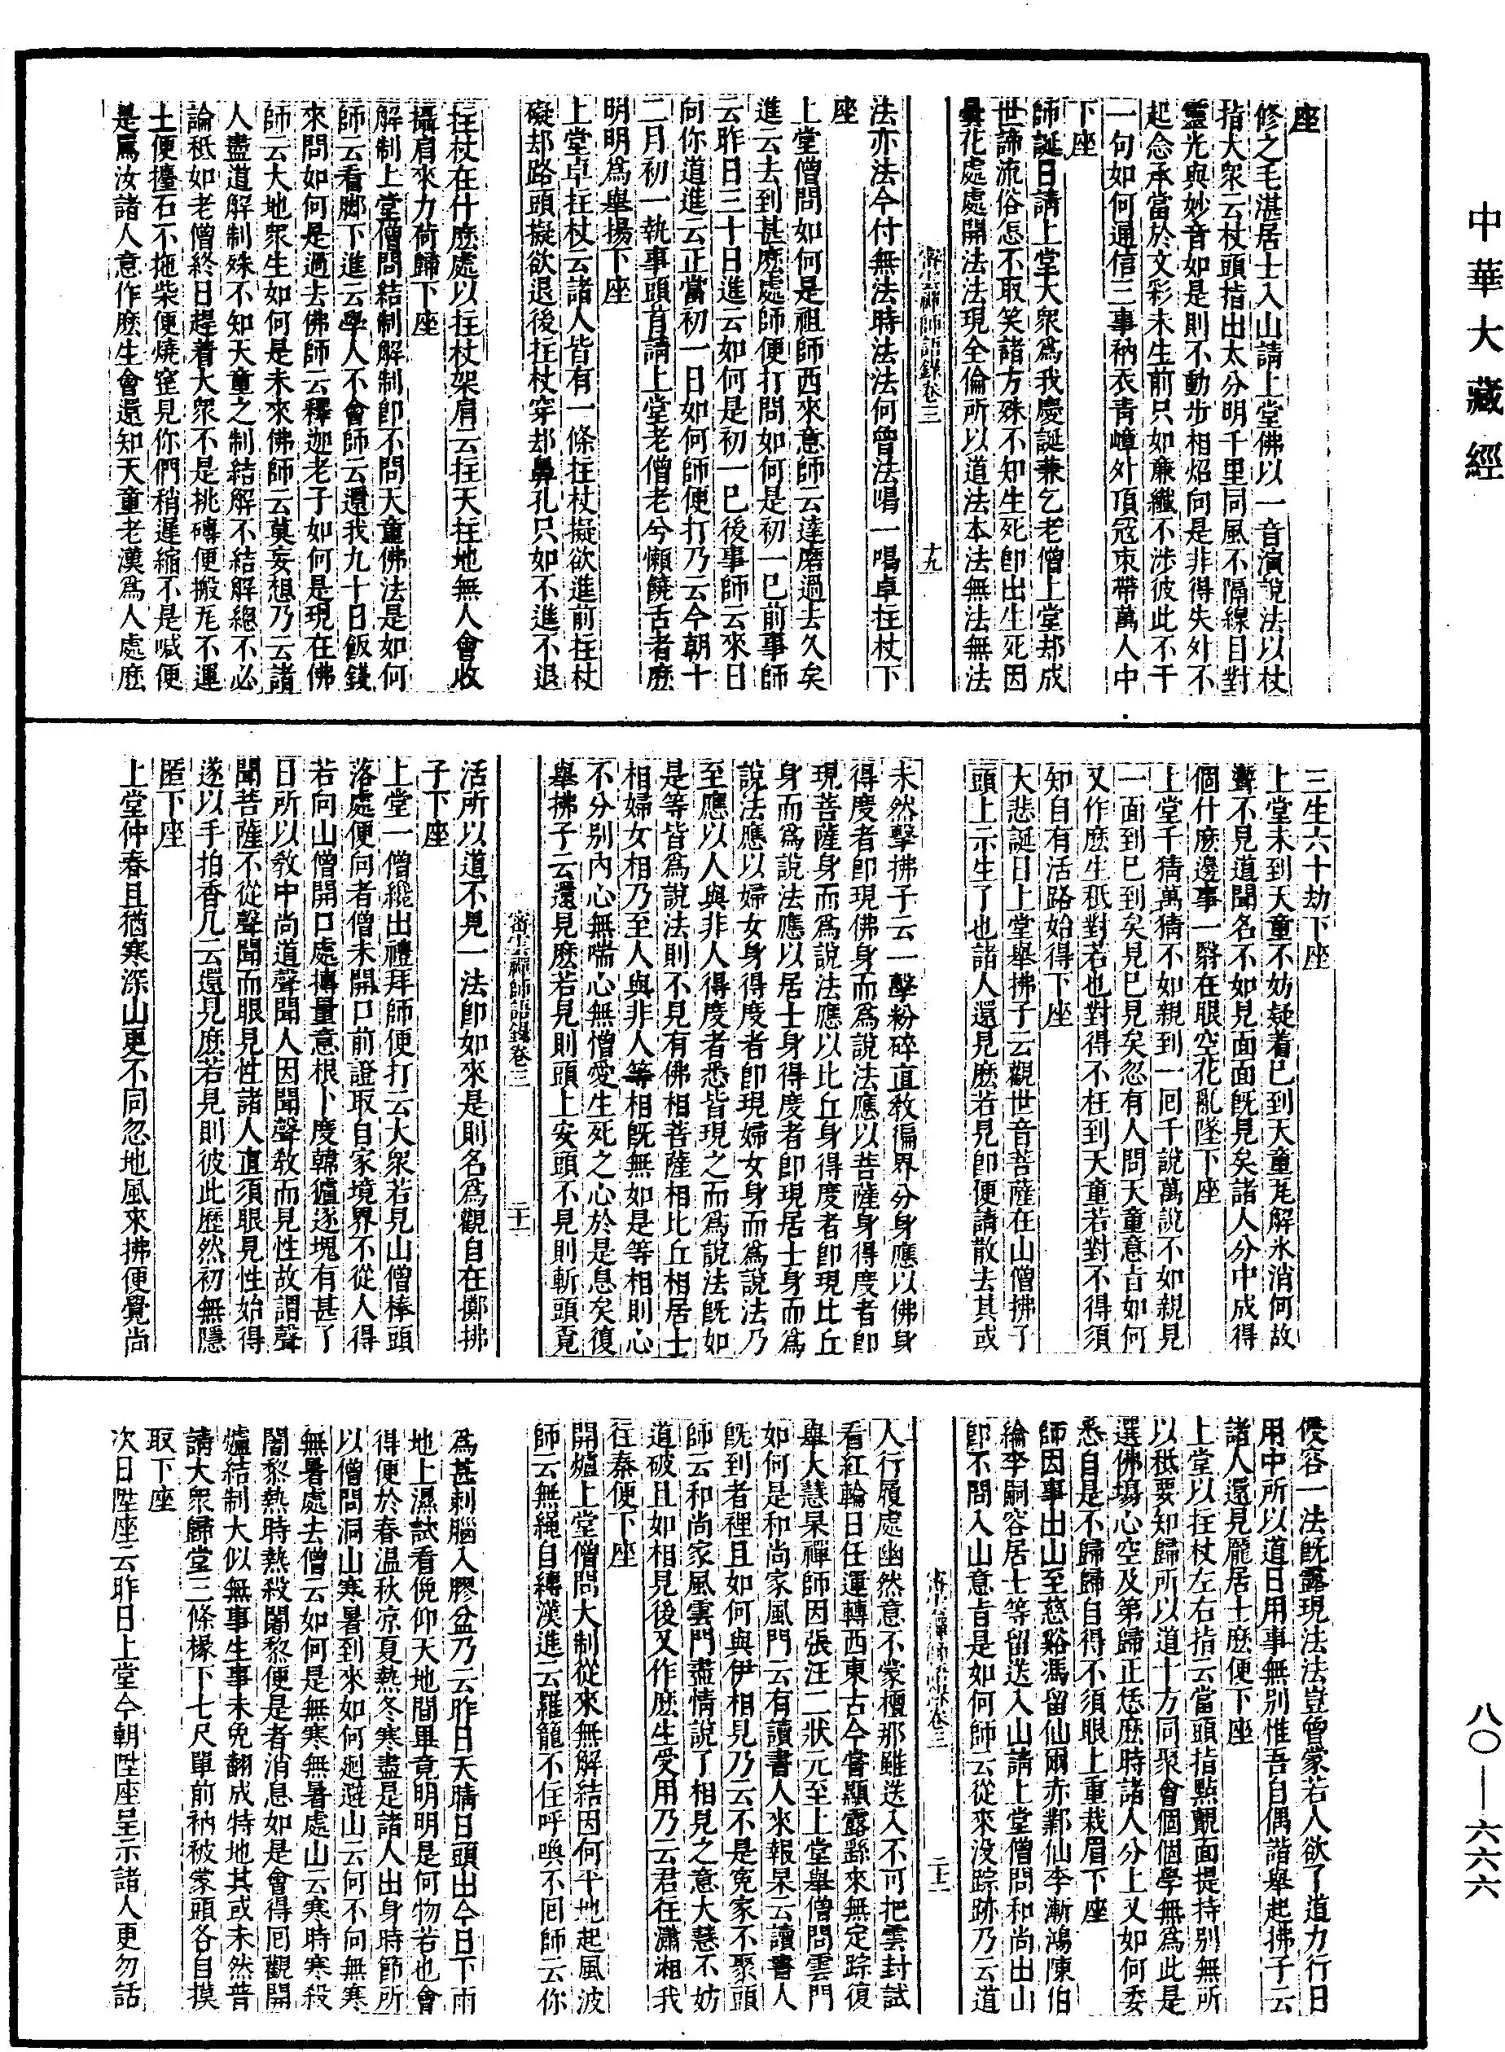 中華大藏經
八〇—六六六
座
修之毛湛居士入山請上堂佛以一音演說法以杖
指大衆云杖頭指出太分明千里同風不隔線目對
靈光與妙音如是則不動步相炤向是非得失外不
起念承當於文彩未生前只如廉纖不涉彼此不干
一句如何通信三事衲衣青嶂外頂冠束帶萬人中
下座
師誕日請上堂大衆爲我慶誕兼乞老僧上堂却成
世諦流俗怎不取笑諸方殊不知生死卽出生死因
曇花處處開法法現全倫所以道法本法無法無法
密雲禪師語錄卷三 十九
法亦法今付無法時法法何曾法喝一喝卓拄杖下
座
上堂僧問如何是祖師西來意師云達磨過去久矣
進云去到甚麽處師便打問如何是初一已前事師
云昨日三十日進云如何是初一已後事師云來日
向你道進云正當初一日如何師便打乃云今朝十
二月初一執事頭首請上堂老僧老兮懶饒舌者麽
明明爲舉揚下座
上堂卓拄杖云諸人皆有一條拄杖擬欲進前拄杖
礙却路頭擬欲退後拄杖穿却鼻孔只如不進不退
拄杖在什麽處以拄杖架肩云拄天拄地無人會收
攝肩來力荷歸下座
解制上堂僧問結制解制卽不問天童佛法是如何
師云看脚下進云學人不會師云還我九十日飯錢
來問如何是過去佛師云釋迦老子如何是現在佛
師云大地衆生如何是未來佛師云莫妄想乃云諸
人盡道解制殊不知天童之制結解不結解總不必
論秪如老僧終日趕着大衆不是挑磚便搬瓦不運
土便擡石不拖柴便燒窰見你們稍遲縮不是喊便
是罵汝諸人意作麽生會還知天童老漢爲人處麽
三生六十劫下座
上堂未到天童不妨疑着已到天童瓦解氷消何故
聻不見道聞名不如見面面旣見矣諸人分中成得
個什麽邊事一翳在眼空花亂墜下座
上堂千猜萬猜不如親到一回千說萬說不如親見
一面到已到矣見已見矣忽有人問天童意旨如何
又作麽生秪對若也對得不枉到天童若對不得須
知自有活路始得下座
大悲誕日上堂舉拂子云觀世音菩薩在山僧拂子
頭上示生了也諸人還見麽若見卽便請散去其或
未然擊拂子云一擊粉碎直敎徧界分身應以佛身
得度者卽現佛身而爲說法應以菩薩身得度者卽
現菩薩身而爲說法應以比丘身得度者卽現比丘
身而爲說法應以居士身得度者卽現居士身而爲
說法應以婦女身得度者卽現婦女身而爲說法乃
至應以人與非人得度者悉皆現之而爲說法旣如
是等皆爲說法則不見有佛相菩薩相比丘相居士
相婦女相乃至人與非人等相旣無如是等相則心
不分別內心無喘心無憎愛生死之心於是息矣復
舉拂子云還見麽若見則頭上安頭不見則斬頭覓
密雲禪師語錄卷三 二十
活所以道不見一法卽如來是則名爲觀自在擲拂
子下座
上堂一僧纔出禮拜師便打云大衆若見山僧棒頭
落處便向者僧未開口前證取自家境界不從人得
若向山僧開口處摶量意根卜度韓獹逐塊有甚了
日所以敎中尚道聲聞人因聞聲敎而見性故謂聲
聞菩薩不從聲聞而眼見性諸人直須眼見性始得
遂以手拍香几云還見麽若見則彼此歷然初無隱
匿下座
上堂仲春且猶寒深山更不同忽地風來拂便覺尚
侵容一法旣露現法法豈曾蒙若人欲了道力行日
用中所以道日用事無別惟吾自偶諧舉起拂子云
諸人還見龐居士麽便下座
上堂以拄杖左右指云當頭指點覿面提持別無所
以秪要知歸所以道十方同聚會個個學無爲此是
選佛場心空及第歸正恁麽時諸人分上又如何委
悉自是不歸歸自得不須眼上重栽眉下座
師因事出山至慈谿馮留仙爾亦鄴仙李漸鴻陳伯
綸李嗣容居士等留送入山請上堂僧問和尚出山
卽不問入山意旨是如何師云從來没踪跡乃云道
密雲禪師語錄卷三 二十一
人行履處幽然意不蒙檀那雖送入不可把雲封試
看紅輪日任運轉西東古今嘗顯露繇來無定踪復
舉大慧杲禪師因張汪二狀元至上堂舉僧問雲門
如何是和尚家風門云有讀書人來報杲云讀書人
旣到者裡且如何與伊相見乃云不是寃家不聚頭
師云和尚家風雲門盡情說了相見之意大慧不妨
道破且如相見後又作麽生受用乃云君往瀟湘我
往秦便下座
開爐上堂僧問大制從來無解結因何平地起風波
師云無繩自縛漢進云羅籠不住呼喚不回師云你
爲甚剌腦入膠盆乃云昨日天晴日頭出今日下雨
地上濕試看俛仰天地間畢竟明明是何物若也會
得便於春温秋凉夏熱冬寒盡是諸人出身時節所
以僧問洞山寒暑到來如何廻避山云何不向無寒
無暑處去僧云如何是無寒無暑處山云寒時寒殺
闍黎熱時熱殺闍黎便是者消息如是會得回觀開
爐結制大似無事生事未免翻成特地其或未然普
請大衆歸堂三條椽下七尺單前衲被蒙頭各自摸
取下座
次日陞座云昨日上堂今朝陞座呈示諸人更勿話